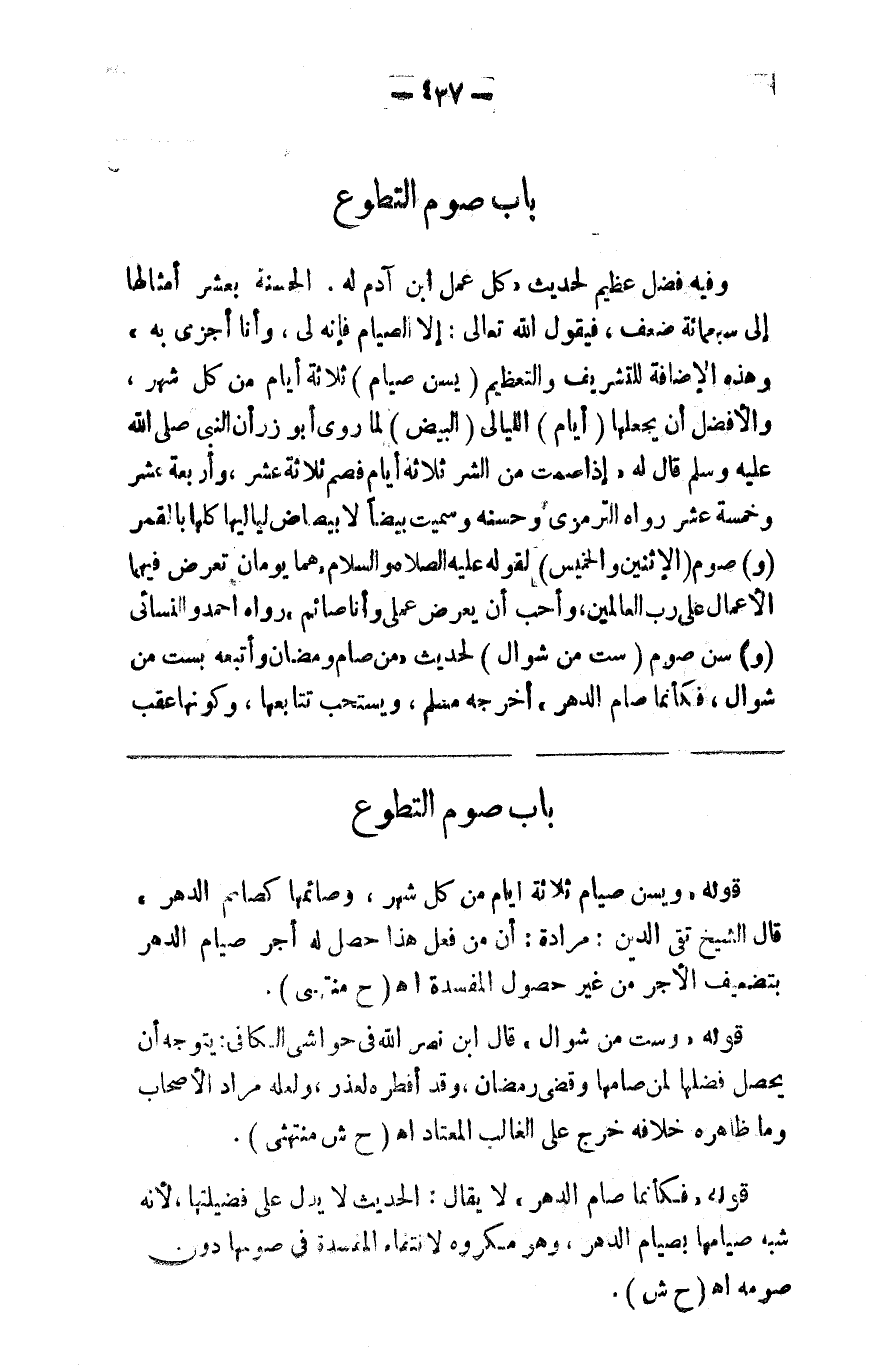 — ٤٣٧ —
باب صوم التطوع
وفيه فضل عظيم لحديث «كل عمل ابن آدم له . الحسنة بعشر أمثالها
إلى سبعمائة ضعف ، فيقول الله تعالى : إلا الصيام فإنه لى ، وأنا أجزى به »
وهذه الإضافة للتشريف والتعظيم ( يسن صيام ) ثلاثة أيام من كل شهر ،
والأفضل أن يجعلها ( أيام ) الليالى ( البيض ) لما روى أبو زر أن النبى صلى الله
عليه وسلم قال له «إذا صمت من الشر ثلاثة أيام فصم ثلاثة عشر ، وأربعة عشر
وخمسة عشر رواه الترمزى وحسنه وسميت بيضاً لابيضاض لياليها كلها بالقمر
(و) صوم (الإثنين والخميس) لقوله عليه الصلاه والسلام «هما يومان تعرض فيهما
الأعمال على رب العالمين، وأحب أن يعرض عملى وأنا صائم » رواه احمد والنسائى
(و) سن صوم ( ست من شوال ) لحديث «من صام ومضان وأتبعه بست من
شوال ، فكأنما صام الدهر » أخرجه مسلم ، ويستحب تتابعها ، وكونها عقب
باب صوم التطوع
قوله «ويسن صيام ثلاثة ايام من كل شهر ، وصائمها كصائم الدهر »
قال الشيخ تقى الدين : مرادة : أن من فعل هذا حصل له أجر صيام الدهر
بتضعيف الأجر من غير حصول المفسدة اه ( ح منتهى ) .
قوله « وست من شوال » قال ابن نصر الله فى حواشى الكافى: يتوجه أن
يحصل فضلها لمن صامها وقضى رمضان ، وقد أفطره لعذر ، ولعله مراد الأصحاب
وما ظاهره خلافه خرج على الغالب المعتاد اه ( ح ش منتهى ) .
قوله «فكأنما صام الدهر » لا يقال : الحديث لا يدل على فضيلتها ، لأنه
شبه صيامها بصيام الدهر ، وهو مكروه لانتفاء المفسدة فى صومها دون
صومه اه ( ح ش ) .